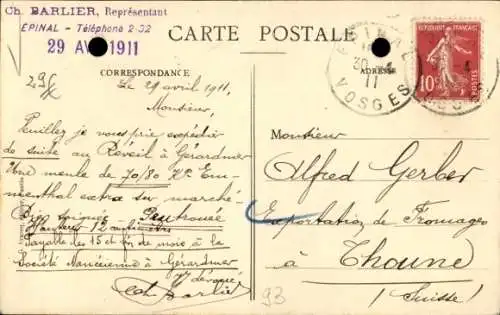 Ch. BARLIER, Représentant
ÉPINAL - Téléphone 2-32
29 AV 1911
CARTE POSTALE
CORRESPONDANCE
ADRESSE
ÉPINAL
30 - 4
11
VOSGES
RÉPUBLIQUE FRANÇAISE
10
Le 29 avril 1911,
Monsieur,
Veuillez je vous prie expédier
de suite au Réveil à Gérardmer
Une meule de 70/80 K° Em-
menthal extra sur marché
Bien soignée - Peu trouée
Hauteur 12 centimètres
Payable des 15 et fin de mois à la
Société Nancéienne à Gérardmer
dévoué
Ch. Barlier
Monsieur
Alfred Gerber
Exportation de Fromages
à Thoune
(Suisse)
93